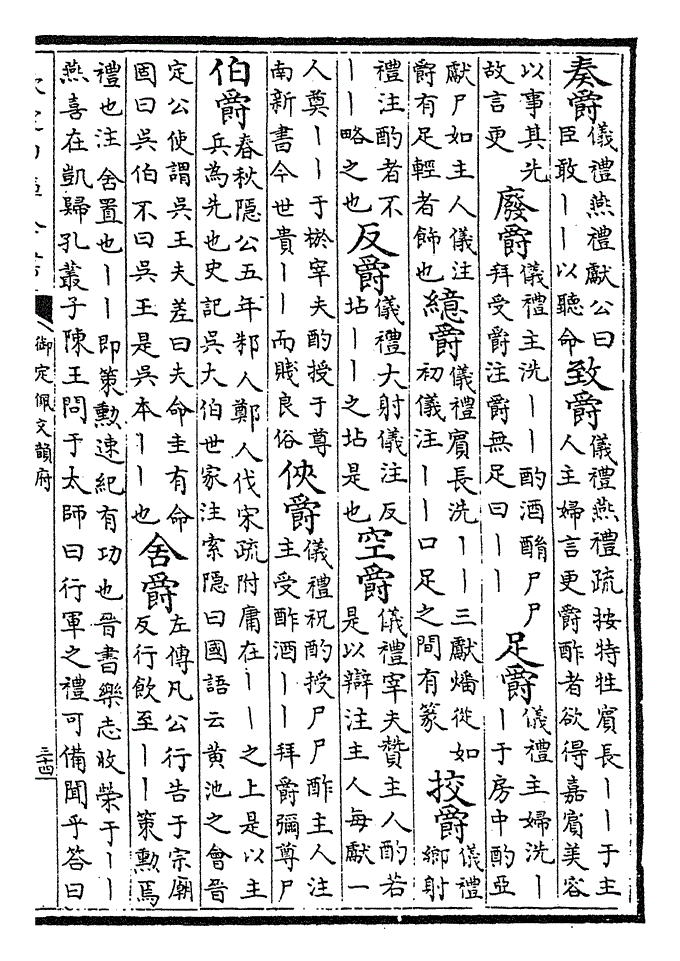 奏爵 儀禮燕禮獻公曰臣敢丨丨以聽命 致爵 儀禮燕禮疏按特牲賓長丨丨于主人主婦言更爵酢者欲得嘉賓美容
以事其先故言更 廢爵 儀禮主洗丨丨酌酒酳尸尸拜受爵注爵無足曰丨丨 足爵 儀禮主婦洗丨丨于房中酌亞
獻尸如主人儀注爵有足輕者飾也 繶爵 儀禮賓長洗丨丨三獻燔從如初儀注丨丨口足之間有篆 挍爵 儀禮鄉射
禮注酌者不丨丨略之也 反爵 儀禮大射儀注反坫丨丨之坫是也 空爵 儀禮宰夫贊主人酌若是以辯注主人每獻一
人奠丨丨于棜宰夫酌授于尊南新書今世貴丨丨而賤良俗 俠爵 儀禮祝酌授尸尸酢主人注主受酢酒丨丨拜爵彌尊尸
伯爵 春秋隱公五年邾人鄭人伐宋疏附庸在丨丨之上是以主兵為先也史記吳大伯世家注索隱曰國語云黄池之會晉
定公使謂吳王夫差曰夫命圭有命固曰吳伯不曰吳王是吳本丨丨也 舍爵 左傳凡公行告于宗廟反行飲至丨丨策勳焉
禮也注舍置也丨丨即策勳速紀有功也晉書樂志收榮于丨丨燕喜在凱歸孔叢子陳王問于太師曰行軍之禮可備聞乎答曰
御定佩文韻府
三十四